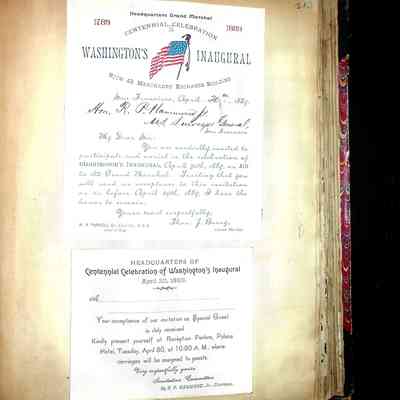 Headquarters Grand Marshal
1789 1889
CENTENNIAL CELEBRATION
WASHINGTON'S INAUGURAL
MERCHANTS EXCHANGE BUILDING
San Francisco, April 1889.
Hon. R. P. Hammond Jr.
U.S. Surveyor General,
San Francisco
My Dear Sir:
You are cordially invited to
participate and assist in the celebration of
WASHINGTON'S INAUGURAL April 30th, 1889, as Aid
to the Grand Marshal. Trusting that you
will send us acceptance to this invitation
on or before April 29th, 1889, I have the
honor to remain,
Yours most respectfully,
Grand Marshal
HEADQUARTERS OF
Centennial Celebration of Washington's Inaugural
April 30, 1889.
Your acceptance of our invitation as Special Guest
is duly received.
Kindly present yourself at Reception Parlors, Palace
Hotel, Tuesday, April 30, at 10.30 A. M., where
carriages will be assigned to guests.
Very respectfully yours,
Invitation Committee